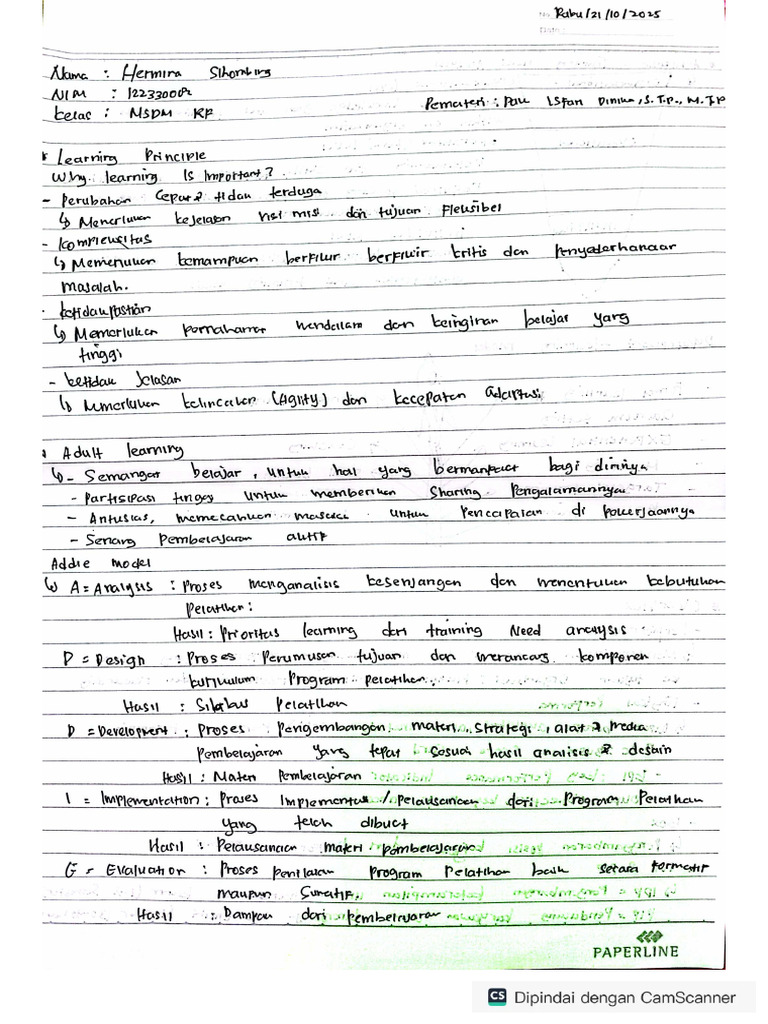 No. Rabu/21/10/2025
Date:
Nama : Hermina Sihombing
NIM :
kelas : MSDM RP
Pemateri : Pak Isfan Dinika, S.T.P., M.T.P
* Learning Principle
Why learning Is Important?
- Perubahan Cepat2 tidak terduga
↳ Memerlukan kejelasan visi misi dan tujuan Fleksibel
- Kompleksitas
↳ Memerlukan kemampuan berfikir berfikir kritis dan penyederhanaan
masalah.
- ketidakpastian
↳ Memerlukan pemahaman mendalam dan keinginan belajar yang
tinggi
- ketidak Jelasan
↳ Memerlukan kelincahan (Agility) dan kecepatan adaptasi
Adult learning
↳ - Semangat belajar, untuk hal yang bermanfaat bagi dirinya
- Partisipasi tinggi untuk memberikan Sharing Pengalamannya
- Antusias, memecahkan masalah untuk Pencapaian di pekerjaannya
- Senang Pembelajaran aktif
Addie model
↳ A = Analysis : Proses menganalisis kesenjangan dan menentukan kebutuhan
pelatihan:
Hasil : Prioritas learning dan training Need analysis
D = Design : Proses Perumusan tujuan dan merancang komponen
kurikulum Program pelatihan.
Hasil : Silabus Pelatihan
D = Development : Proses pengembangan materi, strategi, alat2 media
pembelajaran yang tepat sesuai hasil analisis & desain
Hasil : Materi Pembelajaran
I = Implementation : Proses Implementasi / Pelaksanaan dari Program Pelatihan
yang telah dibuat
Hasil : Pelaksanaan materi pembelajaran
E = Evaluation : Proses penilaian program Pelatihan baik secara formatif
maupun Sumatif
Hasil : Dampak dari pembelajaran
PAPERLINE
CS Dipindai dengan CamScanner